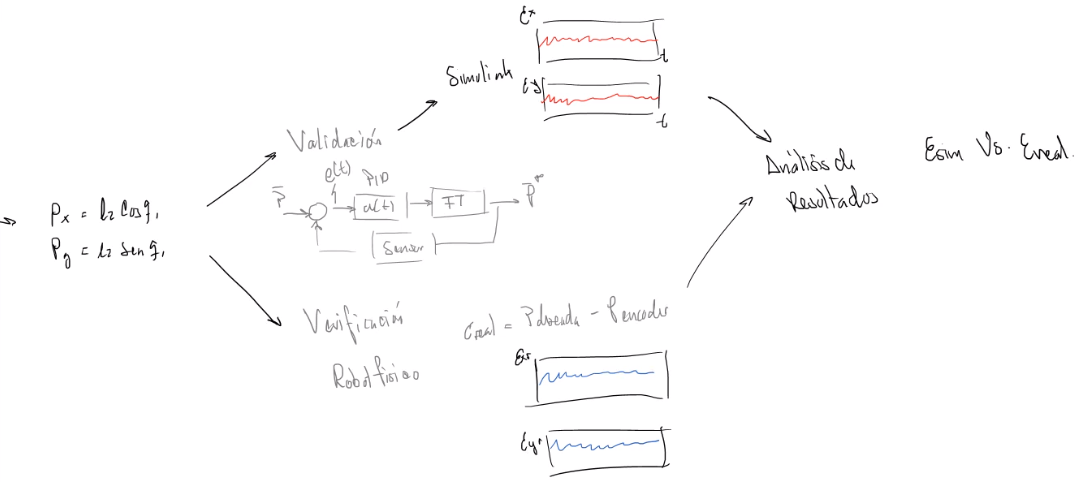 Px = l2 Cos q1
Py = l2 Sen q1
Validación
e(t)
PID
P
u(t)
FT
P*
Sensor
Simulink
Ex
t
Ey
t
Verificación
Robot físico
Ereal = Pdeseada - Pencoder
Exr
Eyr
Análisis de
Resultados
Esim Vs. Ereal.